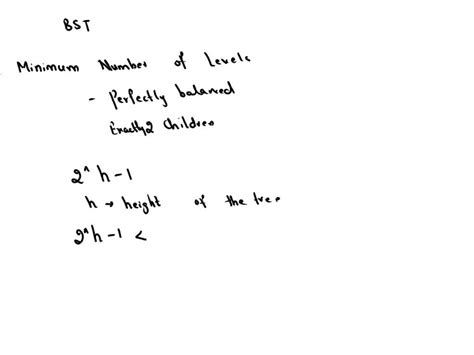 BST
Minimum Number of Levels
- Perfectly balanced
Exactly 2 Children
2^h-1
h → height of the tree
2^h-1 <